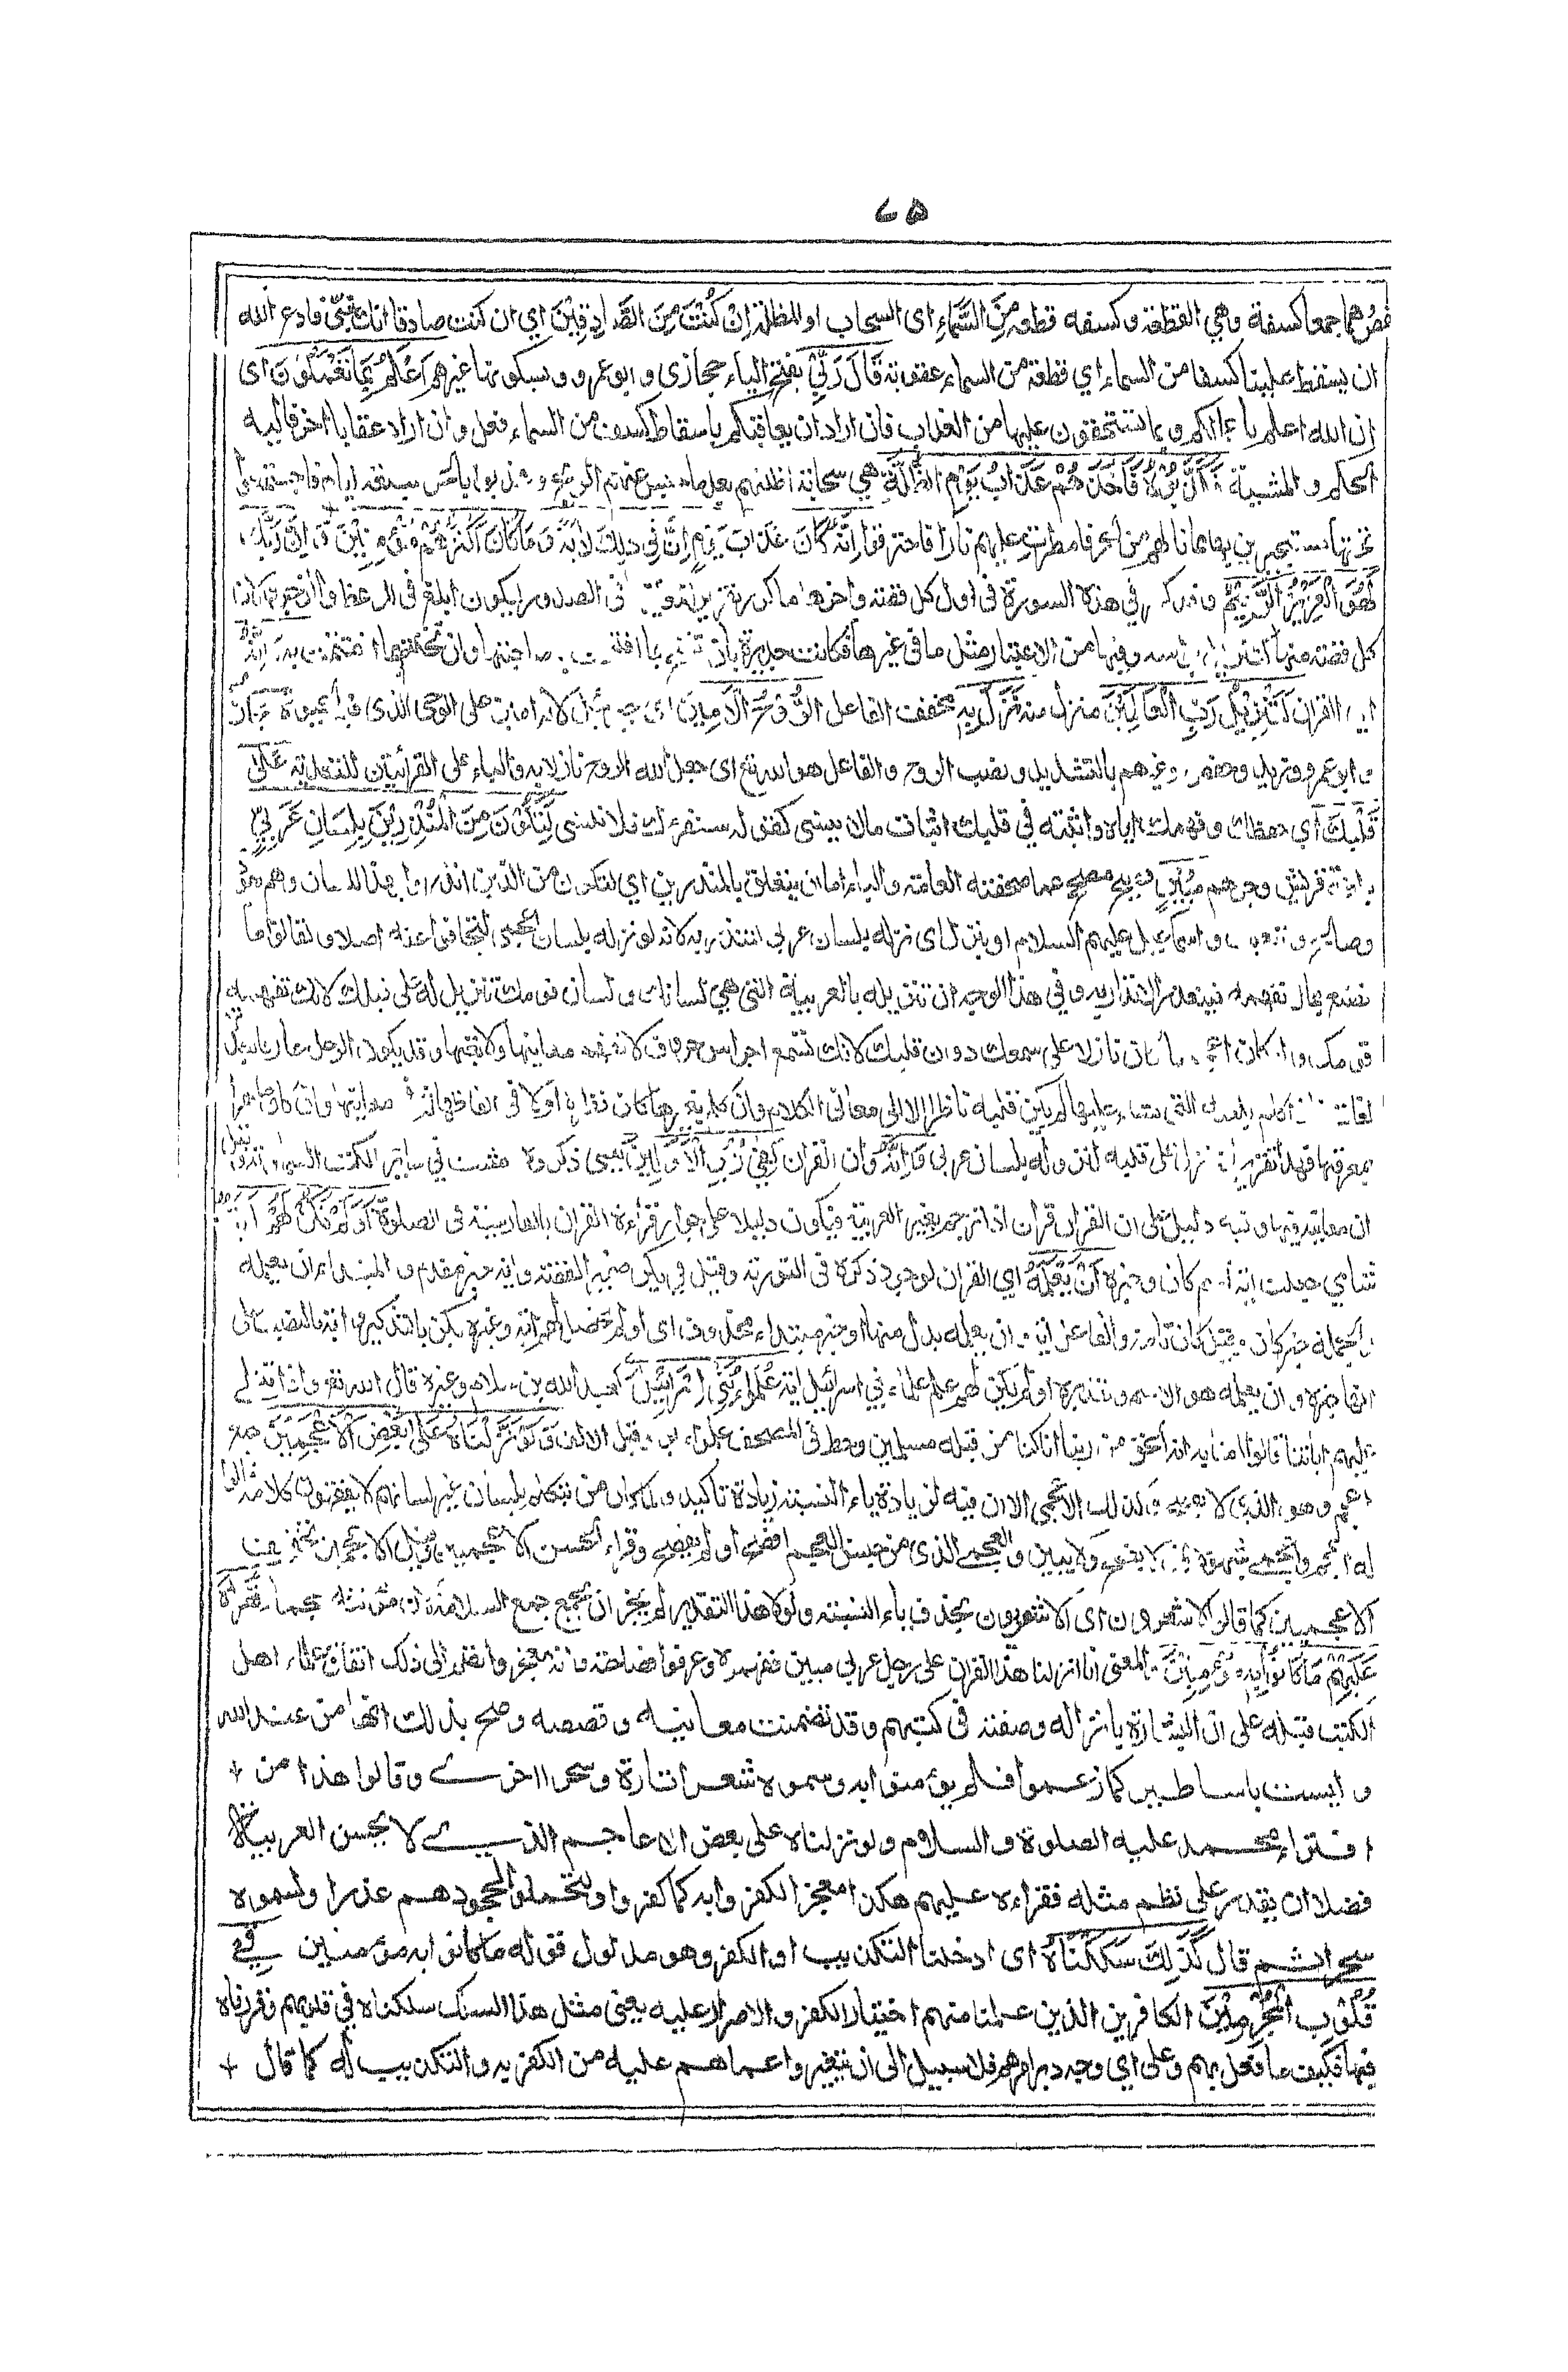 ٧٥
حفص هما جمعا كسفة وهي القطعة وكسفه قطعه مِّنَ السَّمَاءِ اى السحاب او المظلة اِنْ كُنْتَ مِنَ الصَّادِقِيْنَ اي ان كنت صادقا انك نبيّ فادع الله
ان يسقط علينا كسفا من السماء اي قطعة من السماء عقوبة قَالَ رَبِّيْ بفتح الياء حجازى و ابو عمرو و بسكونها غيرهم اَعْلَمُ بِمَا تَعْمَلُوْنَ اى
ان الله اعلم باعمالكم و بما تستحقون عليها من العذاب فان اراد ان يعاقبكم باسقاط كسف من السماء فعل و ان اراد عقابا اخر فاليه
الحكم و المشية فَكَذَّبُوْهُ فَاَخَذَهُمْ عَذَابُ يَوْمِ الظُّلَّةِ هي سحابة اظلتهم بعد ما حبس عنهم الريح و عذبوا بالحر سبعة ايام فاجتمعوا
تحتها مستجيرين بها مما نالهم من الحر فامطرت عليهم نارا فاحترقوا اِنَّهٗ كَانَ عَذَابَ يَوْمٍ اِنَّ فِي ذٰلِكَ لَاٰيَةً وَمَا كَانَ اَكْثَرُهُمْ مُّؤْمِنِيْنَ وَاِنَّ رَبَّكَ
لَهُوَ الْعَزِيْزُ الرَّحِيْمُ و قد كرر في هذه السورة فى اول كل قصة و اخرها ما كرر تقريرا فى الصدور ليكون ابلغ فى الوعظ
كل قصة منها و فيها من الاعتبار مثل ما فى غيرها فكانت جديرة بان
القران لَتَنْزِيْلُ رَبِّ الْعٰلَمِيْنَ منزل منه نَزَلَ بِهِ مخفف الفاعل الرُّوْحُ الْاَمِيْنُ اى جبرئيل لانه امين على الوحى الذى فيه
و ابو عمرو و زيد و حفص و غيرهم بالتشديد و نصب الروح و الفاعل هو الله تع اى جعل الله الروح نازلا به و الباء على القرأتين للتعدية عَلٰى
قَلْبِكَ اى حفظك و فهمك اياه و اثبته في قلبك اثبات ما لا ينسى كقوله سنقرئك فلا تنسى لِتَكُوْنَ مِنَ الْمُنْذِرِيْنَ بِلِسَانٍ عَرَبِيٍّ
قريش و جرهم مُّبِيْنٍ فصيح مصحح عما صحفته العامة و الباء اما ان يتعلق بالمنذرين اي لتكون من الذين انذروا بهذا اللسان و هم هود
و صالح و شعيب و اسماعيل عليهم السلام او بنزل اى نزله بلسان عربى لتنذر به لانه لو نزله بلسان اعجمى لتجافوا عنه اصلا و لقالوا ما
نصنع بما لا نفهمه فيتعذر الانذار به و في هذا الوجه ان تنزيله بالعربية التى هي لسانك و لسان قومك تنزيل له على قلبك لانك تفهمه
قومك و لو كان اعجميا لكان نازلا على سمعك دون قلبك لانك تسمع اجراس حروف لا تفهم معانيها و لا تعيها و قد يكون الرجل عارفا
لم يكن قلبه ناظرا الا الى معانى الكلام و ان
بمعرفتها فهذا تقرير انه نزل على قلبه لنزوله بلسان عربى وَاِنَّهٗ و ان القران لَفِيْ زُبُرِ الْاَوَّلِيْنَ يعنى ذكره مثبت في سائر الكتب السماوية
ان معانيه فيها و فيه دليل على ان القران قران اذا ترجم بغير العربية فيكون دليلا على جواز قراءة القران بالفارسية فى الصلوة اَوَلَمْ يَكُنْ لَّهُمْ اٰيَةً
شامي جعلت اية اسم كان و خبره اَنْ يَّعْلَمَهٗ اي القران لوجود ذكره فى التورية و قيل في يكن ضمير القصة و اية خبر مقدم و المبتداء ان يعلمه
و الجملة خبر كان و قيل كان تامة و الفاعل اية و ان يعلمه بدل منها او خبر مبتداء محذوف اى او لم تحصل لهم اية و غيره يكن بالتذكير و اية بالنصب على
انها خبره و ان يعلمه هو الاسم و تقديره او لم يكن لهم علم علماء بني اسرائيل اية عُلَمٰٓؤُا بَنِيْ اِسْرَآئِيْلَ كعبد الله بن سلام و غيره قال الله تعو و اذا يتلى
عليهم اياتنا قالوا امنا به انه الحق من ربنا انا كنا من قبله مسلمين و خط فى المصحف علموا بواو قبل الالف وَلَوْ نَزَّلْنٰهُ عَلٰى بَعْضِ الْاَعْجَمِيْنَ جمع
اعجم و هو الذى لا يفصح و كذلك الاعجمى الا ان فيه لزيادة ياء النسبة زيادة تاكيد و لما كان من يتكلم بلسان غير لسانهم لا يفقهون كلامه قالوا
له اعجم و اعجمى شبهوه بمن لا يفصح و لا يبين و العجمي الذى من جنس العجم افصح او لم يفصح و قراء الحسن الاعجميين و قيل الاعجمين تخفيف
الاعجميين كما قالوا الاشعرون اى الاشعريون بحذف ياء النسبة و لولا هذا التقدير لم يجز ان يجمع جمع السلامة لان مؤنثه عجماء فَقَرَاَهٗ
عَلَيْهِمْ مَّا كَانُوْا بِهٖ مُؤْمِنِيْنَ المعنى انا انزلنا هذا القران على رجل عربى مبين ففهموه و عرفوا فصاحته و انه معجز و انضم الى ذلك اتفاق علماء اهل
الكتب قبله على ان البشارة بانزاله و صفته فى كتبهم و قد تضمنت معانيه و قصصه و صح بذلك انها من عند الله
و ليست باساطير كما زعموا فلم يؤمنوا به و سموه شعرا تارة و سحرا اخرے و قالوا هذا من
افتراء محمد عليه الصلوة و السلام و لو نزلناه على بعض الاعاجم الذے لا يحسن العربية
فضلا ان يقدر على نظم مثله فقراءه عليهم هكذا معجزا لكفروا به كما كفروا و لتحملوا لجحودهم عذرا و لسموه
سحرا ثم قال كَذٰلِكَ سَلَكْنٰهُ اى ادخلنا التكذيب او الكفر و هو مدلول قوله ما كانوا به مؤمنين فِيْ
قُلُوْبِ الْمُجْرِمِيْنَ الكافرين الذين علمنا منهم اختيار الكفر و الاصرار عليه يعنى مثل هذا السلك سلكناه في قلوبهم و قررناه
فيها فكيف ما فعل بهم و على اي وجه دبر امرهم فلا سبيل الى ان يتغيروا عما هم عليه من الكفر به و التكذيب له كما قال